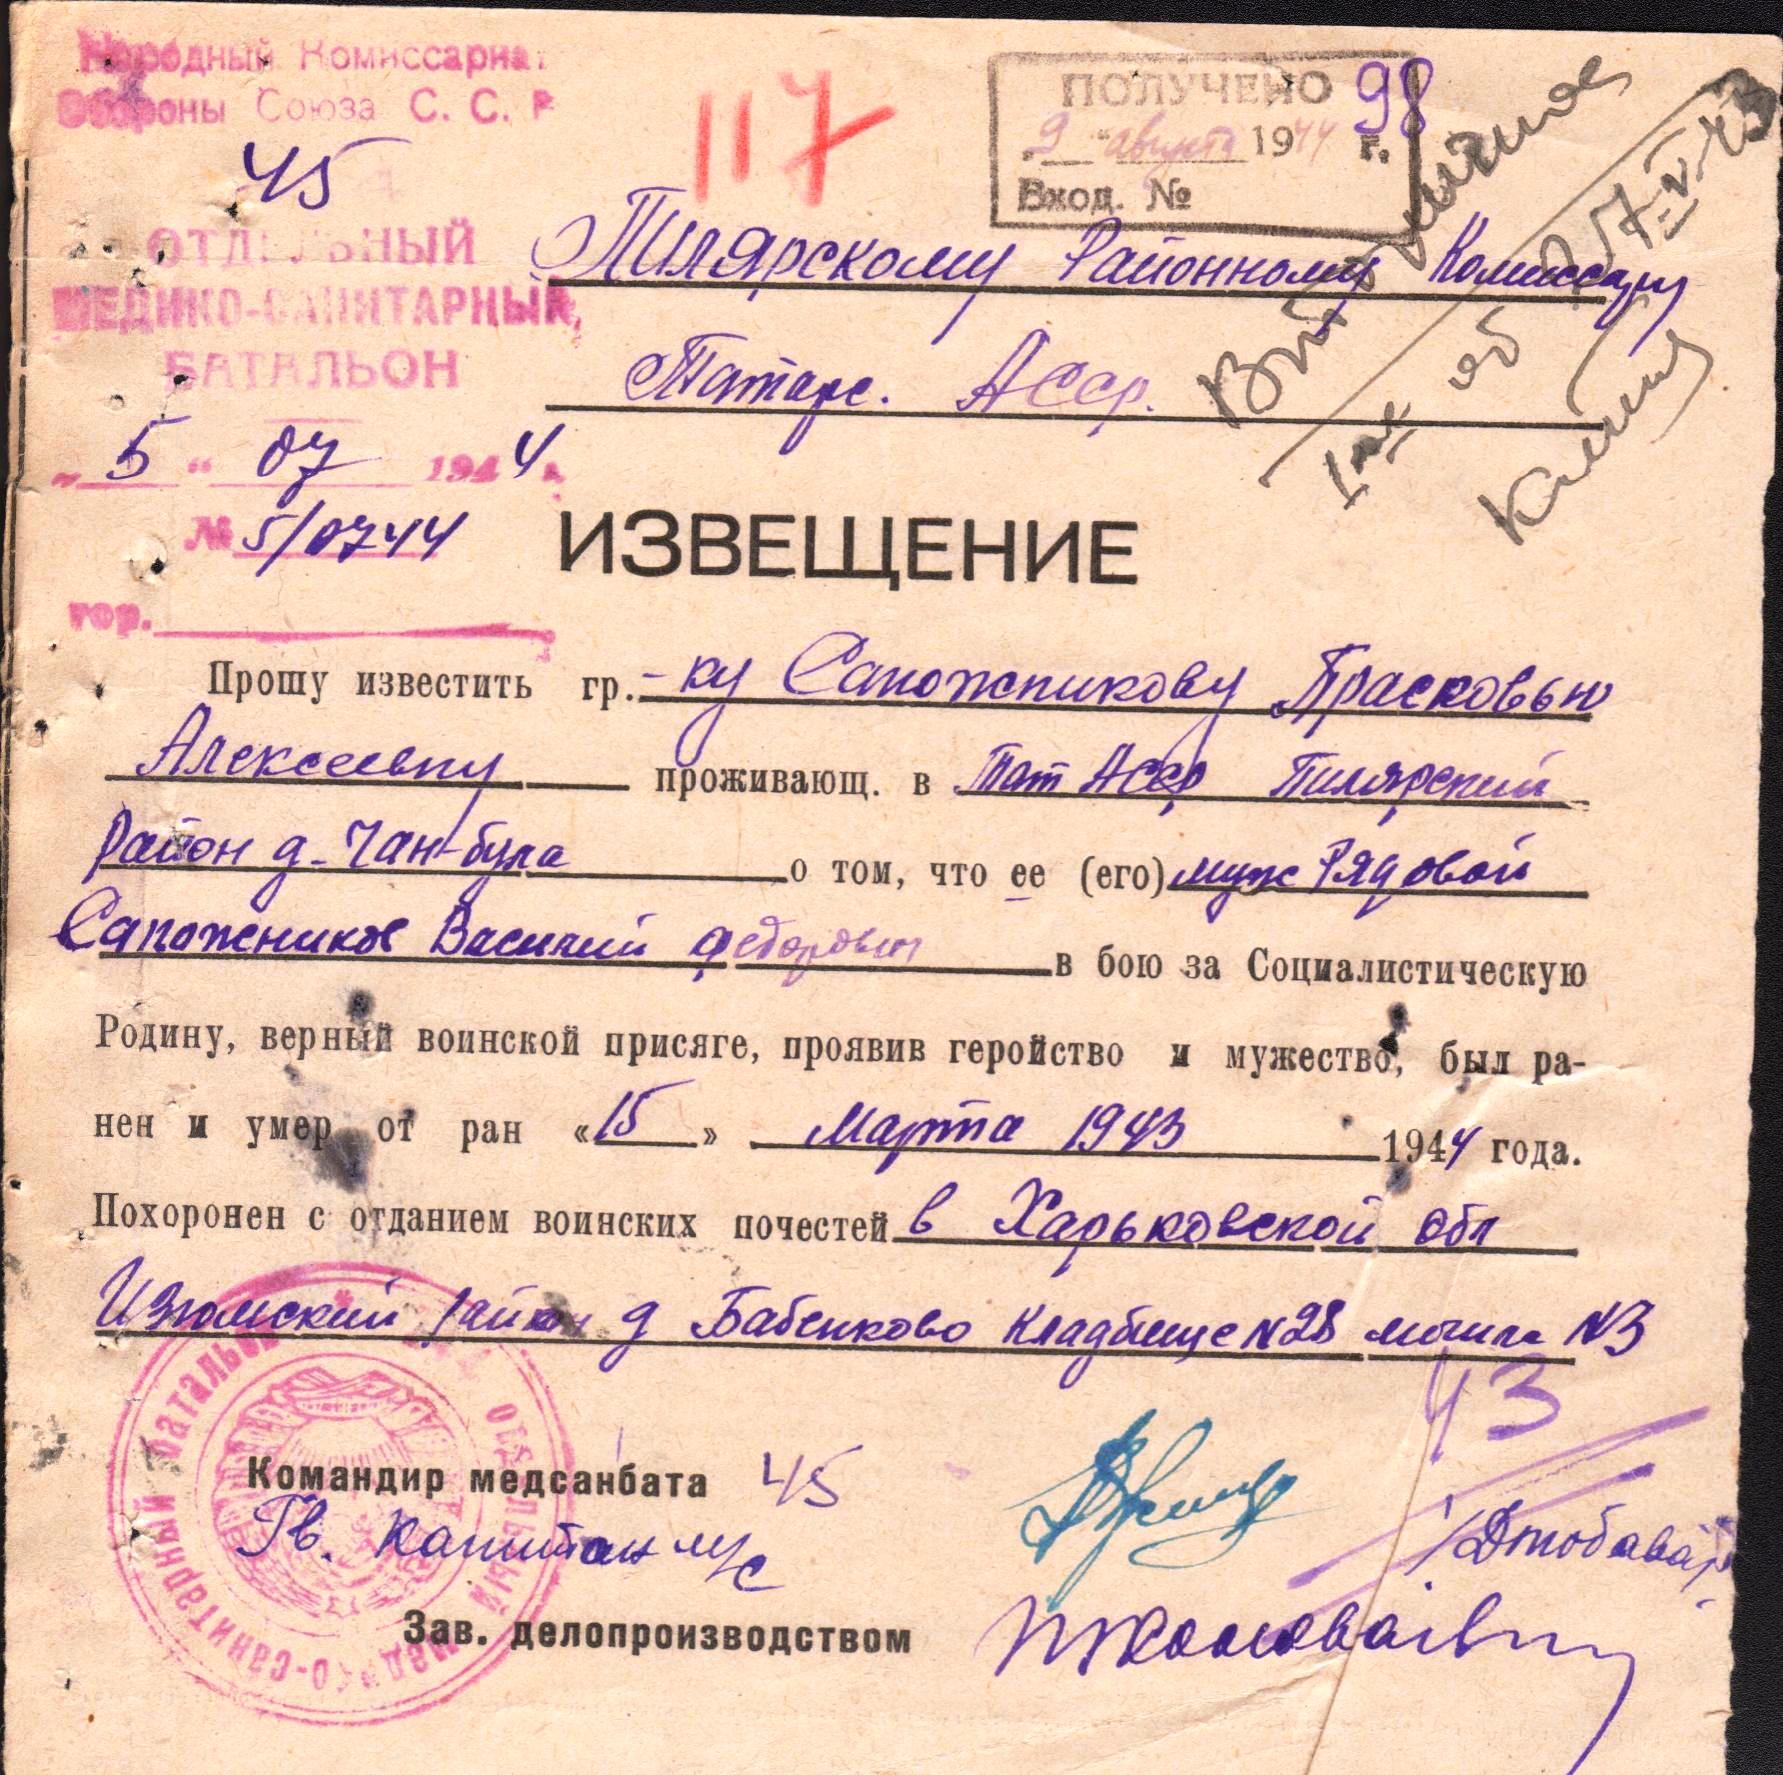 Народный Комиссариат
Обороны Союза С. С. Р
45
ОТДЕЛЬНЫЙ
МЕДИКО-САНИТАРНЫЙ
БАТАЛЬОН
„ 5 “ 07 1944 г.
№ 5/0744
гор.
117
ПОЛУЧЕНО 98
9 " августа 1944 г.
Вход. №
Пилярскому Районному Комиссару
Татарс. АССР.
ИЗВЕЩЕНИЕ
Прошу известить гр.-ку Сапожникову Прасковью
Алексеевну проживающ. в Тат АССР Пилярский
Район д. Чан-була о том, что ее (его) муж Рядовой
Сапожников Василий Федорович в бою за Социалистическую
Родину, верный воинской присяге, проявив геройство и мужество, был ра-
нен и умер от ран «15» Марта 1943 1944 года.
Похоронен с отданием воинских почестей в Харьковской обл
Изюмский район д Бабенково Кладбище N28 могила N3
43
Командир медсанбата 45
Гв. Капитан м/с
Зав. делопроизводством